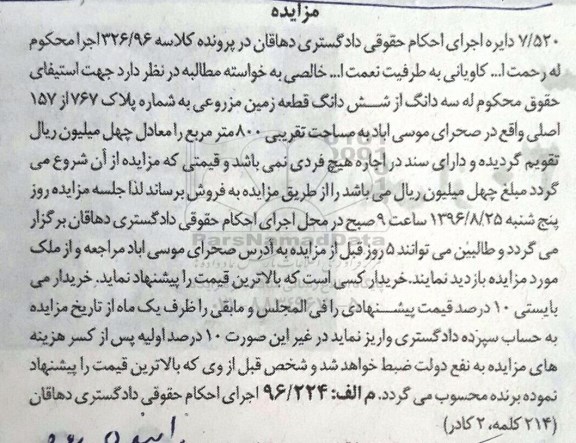 مزایده
۷/۵۲۰ دایره اجرای احکام حقوقی دادگستری دهاقان در پرونده کلاسه ۳۲۶/۹۶ اجرا محکوم
له رحمت ا... کاویانی به طرفیت نعمت ا... خالصی به خواسته مطالبه در نظر دارد جهت استیفای
حقوق محکوم له سه دانگ از شش دانگ قطعه زمین مزروعی به شماره پلاک ۷۶۷ از ۱۵۷
اصلی واقع در صحرای موسی اباد به مساحت تقریبی ۸۰۰ متر مربع را معادل چهل میلیون ریال
تقویم گردیده و دارای سند در اجاره هیچ فردی نمی باشد و قیمتی که مزایده از آن شروع می
گردد مبلغ چهل میلیون ریال می باشد را از طریق مزایده به فروش برساند لذا جلسه مزایده روز
پنج شنبه ۱۳۹۶/۸/۲۵ ساعت ۹ صبح در محل اجرای احکام حقوقی دادگستری دهاقان برگزار
می گردد و طالبین می توانند ۵ روز قبل از مزایده به آدرس صحرای موسی اباد مراجعه و از ملک
مورد مزایده بازدید نمایند. خریدار کسی است که بالاترین قیمت را پیشنهاد نماید. خریدار می
بایستی ۱۰ درصد قیمت پیشنهادی را فی المجلس و مابقی را ظرف یک ماه از تاریخ مزایده
به حساب سپرده دادگستری واریز نماید در غیر این صورت ۱۰ درصد اولیه پس از کسر هزینه
های مزایده به نفع دولت ضبط خواهد شد و شخص قبل از وی که بالاترین قیمت را پیشنهاد
نموده برنده محسوب می گردد. م الف: ۹۶/۲۲۴ اجرای احکام حقوقی دادگستری دهاقان
(۲۱۴ کلمه، ۲ کادر)
ParsNamadData